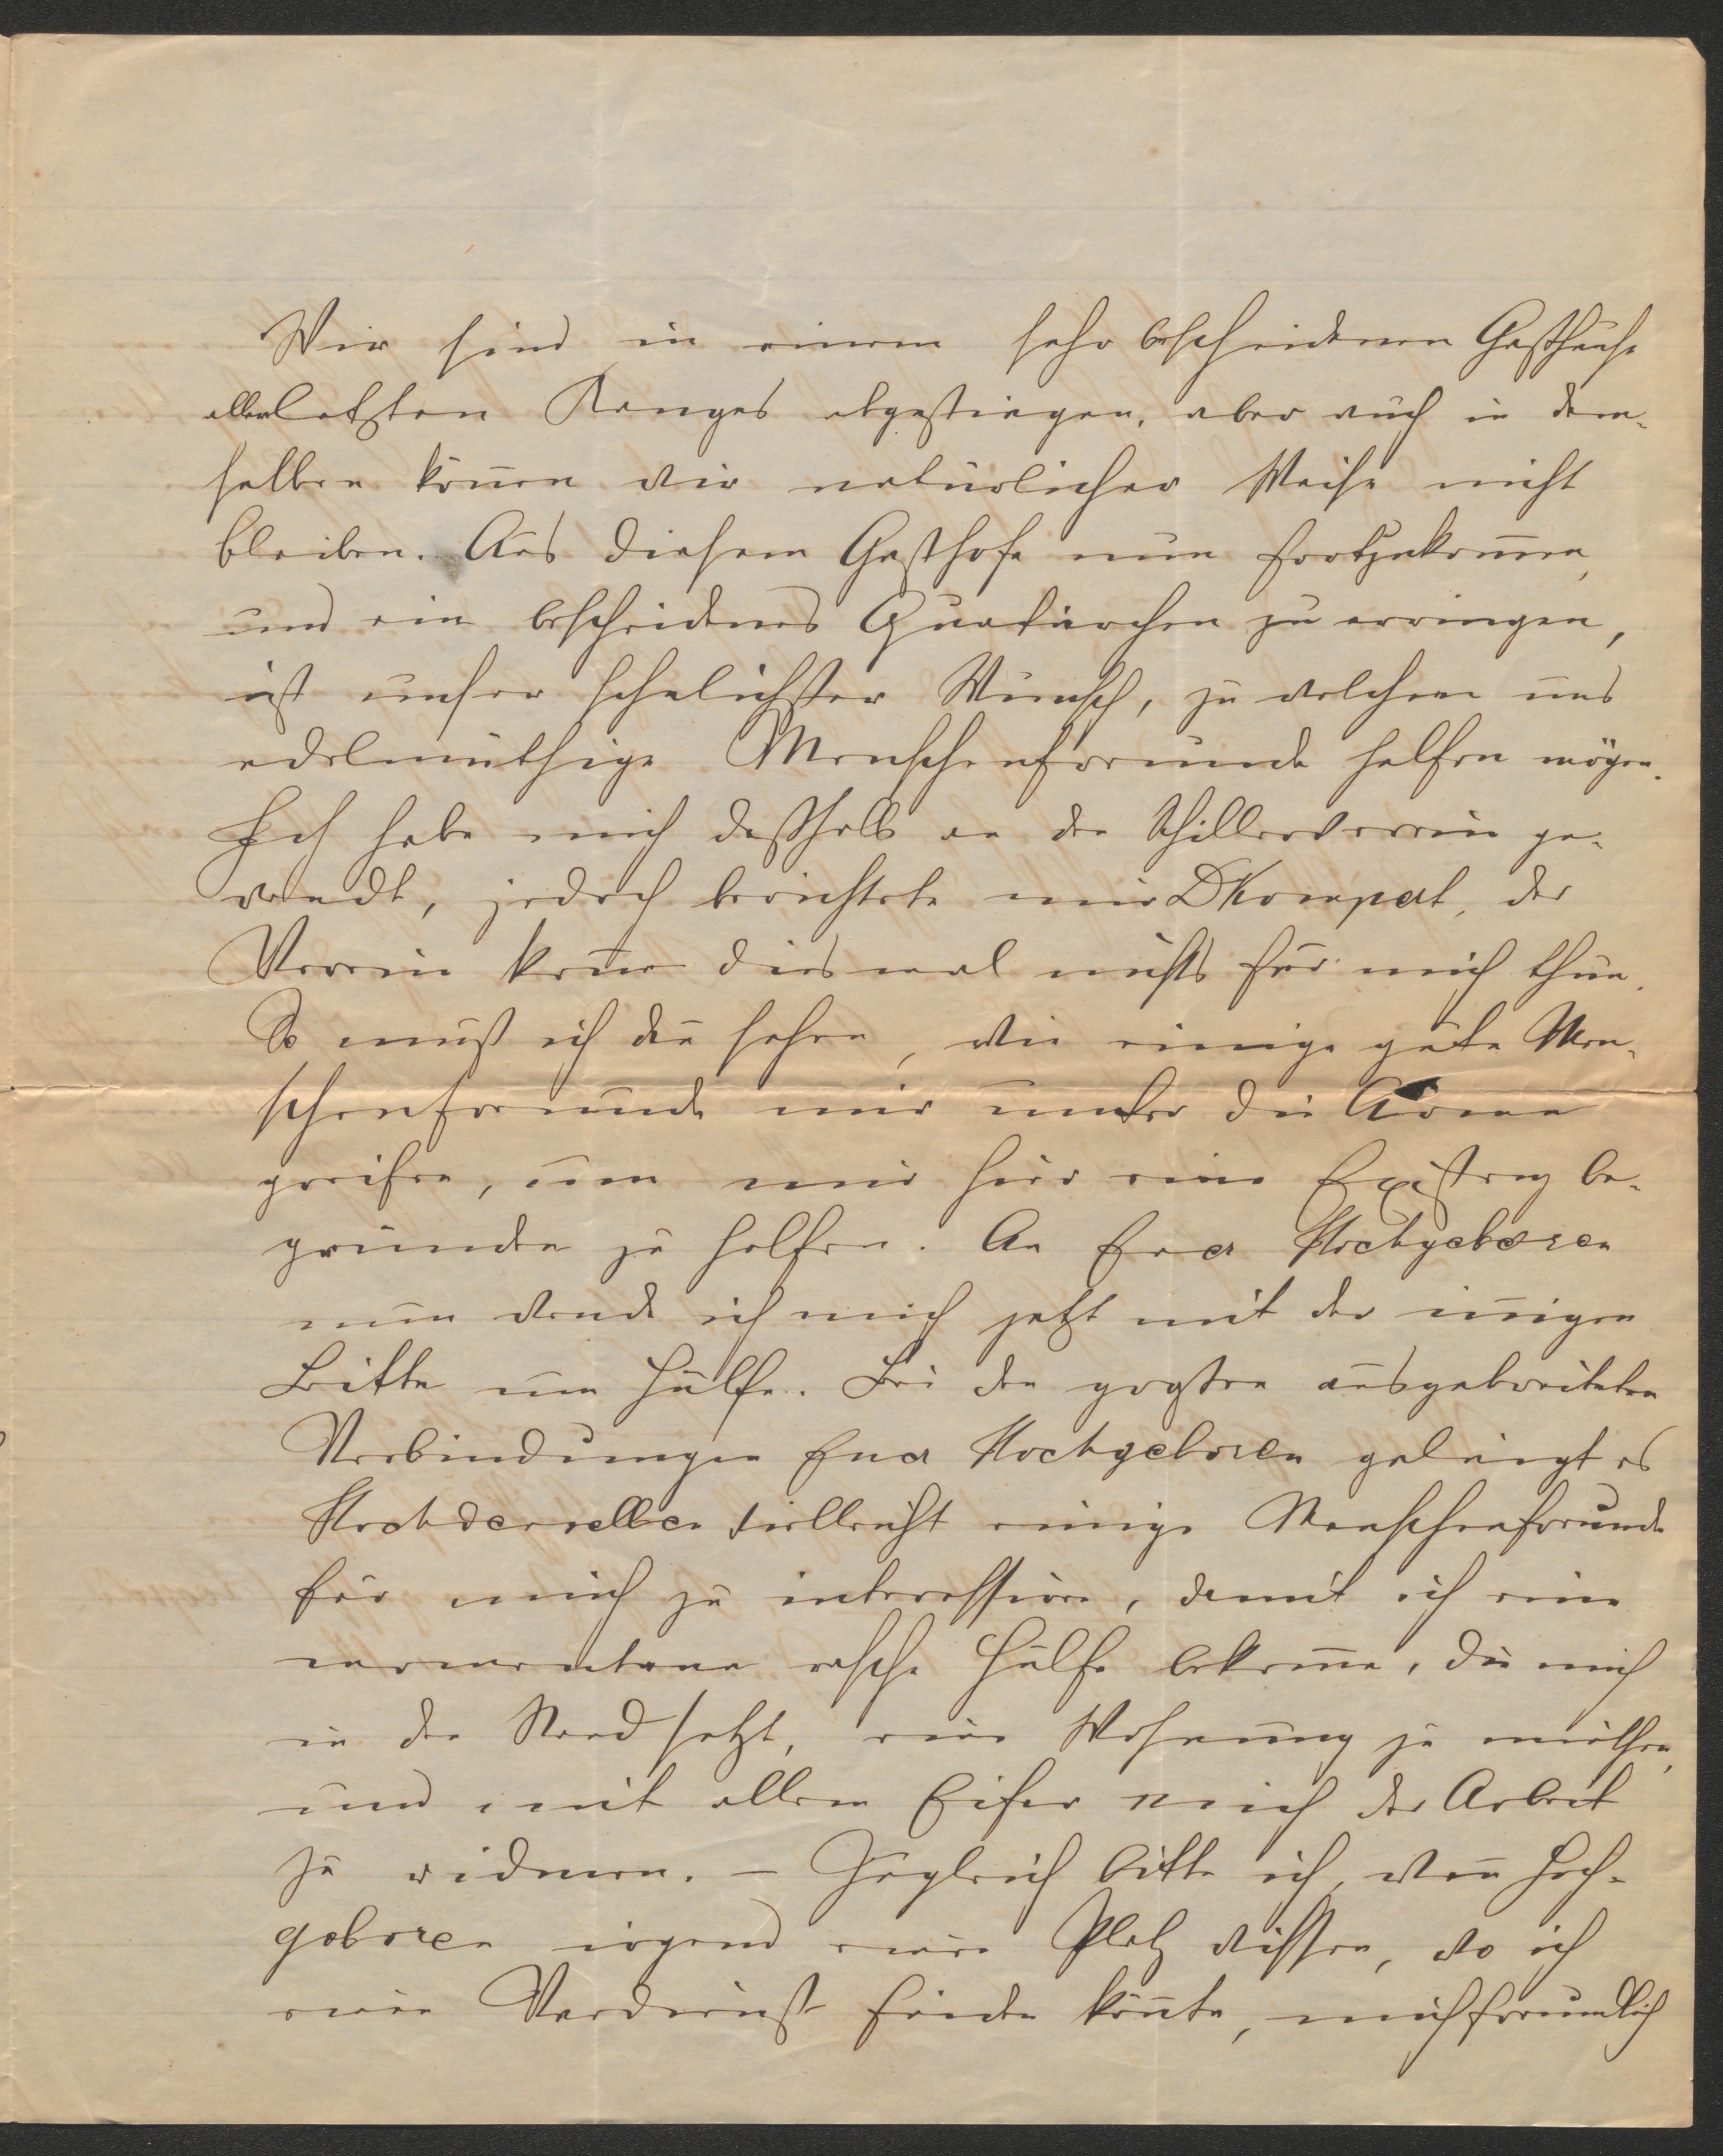 Wir sind in einem sehr bescheidenen Gasthause
allerletzten Ranges abgestiegen, aber auch in dem-
selben können wir natürlicher Weise nicht
bleiben. Aus diesem Gasthofe nun fortzukom̄en,
und ein bescheidenes Quartierchen zu erringen,
ist unser sehnlichster Wunsch, zu welchem uns
edelmüthige Menschenfreunde helfen mögen.
Ich habe mich deßhalb an den Schillerverein ge-
wendt, jedoch berichtete mir D Kompert, der
Verein kön̄e diesmal nichts für mich thun.
So muß ich den̄ sehen, wie einige gute Men-
schenfreunde mir unter die Arme
greifen, um mir hier eine Existenz be-
gründen zu helfen. An Euer Hochgeboren
nun wende ich mich jetzt mit der in̄igen
Bitte um Hülfe. Bei den großen ausgebreiteten
Verbindungen Euer Hochgeboren gelingt es
Hochderselben vielleicht einige Menschenfreunde
für mich zu interessiren, damit ich eine
momentane rasche Hülfe bekom̄e, die mich
in den Stand setzt, eine Wohnung zu miethen,
und mit allem Eifer mich der Arbeit
zu widmen. – Zugleich bitte ich, wen̄ Hoch-
geboren irgend einen Platz wissen, wo ich
einen Verdienst finden kön̄te, mich freundlich